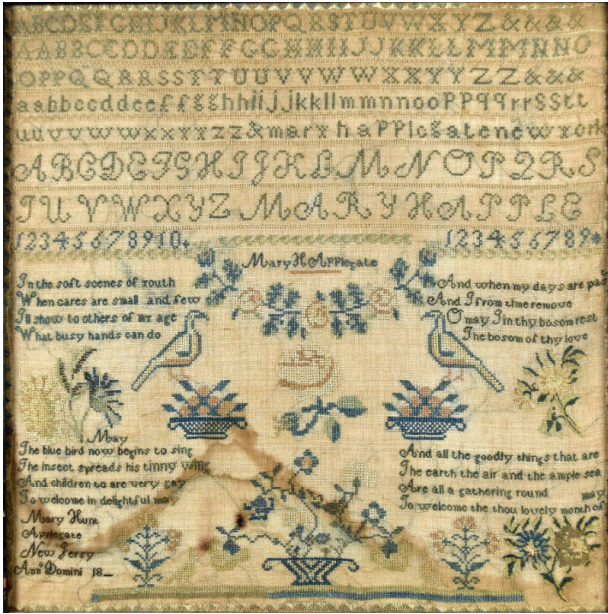 ABCDEFGHIJKLMNOPQRSTUVWXYZ&&&&
AABBCCDDEEFFGGHHIIJJKKLLMMNNO
OPPQQRRSSTTUUVVWWXXYYZZ&&&
aabbccddeeffgghhiijjkkllmmnnooppqqrrsstt
uuvvwwxxyyzz&maryhapplegatenewyork
ABCDEFGHIJKLMNOPQRS
TUVWXYZ MARY HAPPLE
12345678910
123456789
Mary H Applegate
In the soft scenes of youth
When cares are small and few
I'll show to others of my age
What busy hands can do
And when my days are past
And I from time remove
O may I in thy bosom rest
The bosom of thy love
May
The blue bird now begins to sing
The insect spreads his tinny wing
And children to are very gay
To welcome in delightful may
And all the goodly things that are
The earth the air and the ample sea
Are all a gathering round may
To welcome the thou lovely month of
Mary Hunt
Applegate
New Jersy
Anno Domini 18